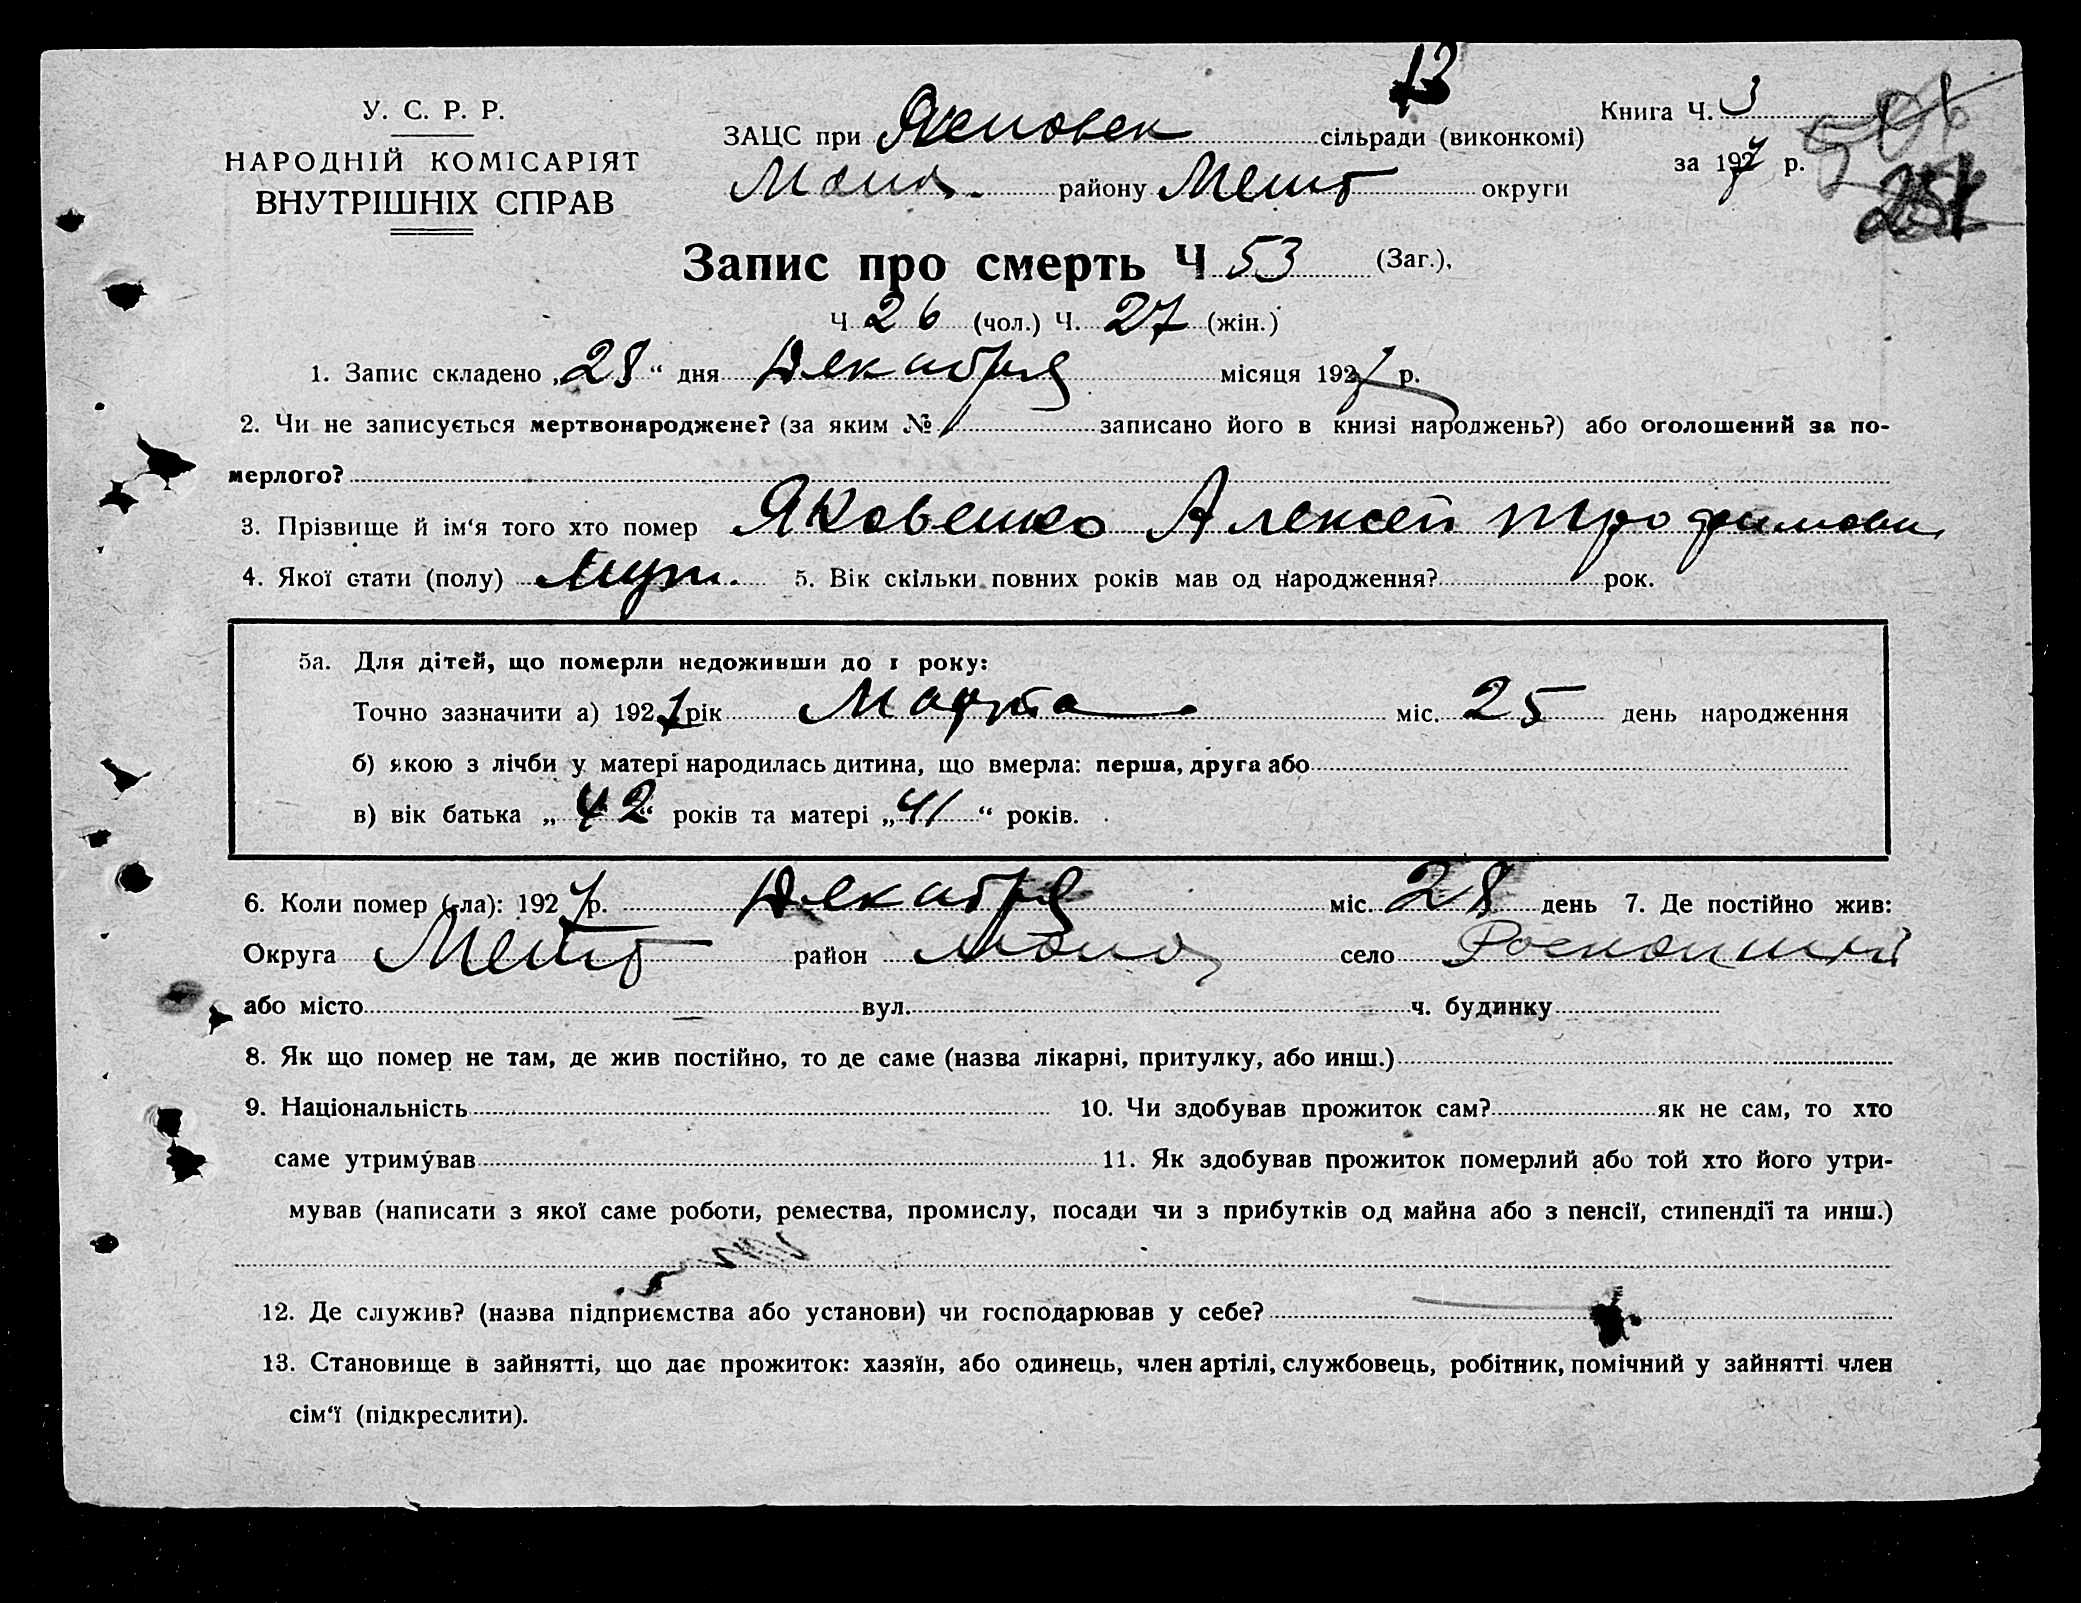 13
У. С. Р. Р.
НАРОДНІЙ КОМІСАРІЯТ
ВНУТРІШНІХ СПРАВ
ЗАЦС при сільради (виконкомі)
району округи
Книга Ч. 3
за 1927 р.
251
Запис про смерть Ч 53 (Заг.),
Ч 26 (чол.) Ч. 27 (жін.)
1. Запис складено „28“ дня Декабря місяця 1927 р.
2. Чи не записується мертвонароджене? (за яким № записано його в книзі народжень?) або оголошений за по-
мерлого?
3. Прізвище й ім'я того хто помер Яковенко Алексей Трофимови
4. Якої стати (полу) муж. 5. Вік скільки повних років мав од народження? рок.
5а. Для дітей, що померли недоживши до 1 року:
Точно зазначити а) 1927 рік Марта міс. 25 день народження
б) якою з лічби у матері народилась дитина, що вмерла: перша, друга або
в) вік батька „42“ років та матері „41“ років.
6. Коли помер (-ла): 1927 р. Декабря міс. 28 день 7. Де постійно жив:
Округа район село
або місто вул. ч. будинку
8. Як що помер не там, де жив постійно, то де саме (назва лікарні, притулку, або инш.)
9. Національність 10. Чи здобував прожиток сам? як не сам, то хто
саме утримував 11. Як здобував прожиток померлий або той хто його утри-
мував (написати з якої саме роботи, ремества, промислу, посади чи з прибутків од майна або з пенсії, стипендії та инш.)
12. Де служив? (назва підприємства або установи) чи господарював у себе?
13. Становище в зайнятті, що дає прожиток: хазяїн, або одинець, член артілі, службовець, робітник, помічний у зайнятті член
сім'ї (підкреслити).